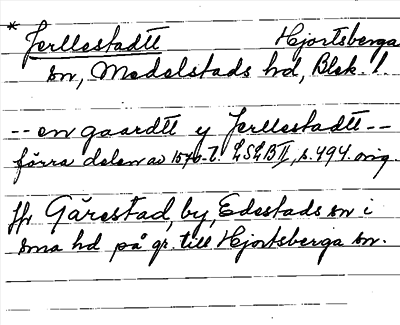 * Jerllestadtt Hjortsberga
sn, Medelstads hd, Blek. l.
-- en gaardtt y Jerllestadtt --
förra delen av 1570-t. LSLB II, s. 494. orig.
Jfr Gärestad, by, Edestads sn i
sma hd på gr. till Hjortsberga sn.